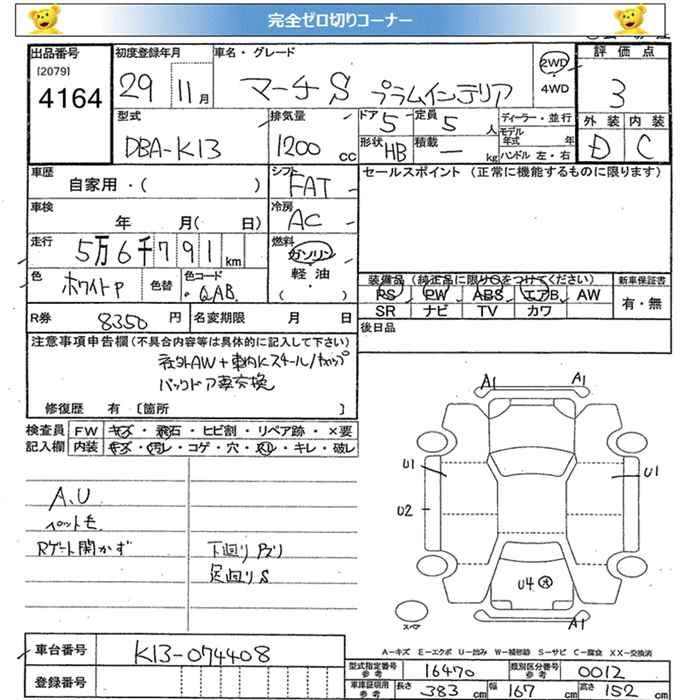 完全ゼロ切りコーナー
出品番号 初度登録年月 車名・グレード 評価点
[2079]
4164 29 11月 マーチ S プラムインテリア 2WD 4WD 3
型式 排気量 ドア 定員 ディーラー・並行 外装 内装
DBA-K13 1200 cc 5 5 人 モデル年式 年 D C
形状 HB 積載 ー kg ハンドル 左・右
車歴 シフト セールスポイント (正常に機能するものに限ります)
自家用・( ) FAT
車検 冷房
年 月( 日) AC
走行 燃料
5万6千791 km ガソリン
色 色替 色コード 軽油
ホワイトP QAB ( )
装備品 (純正品に限り○をつけてください) 新車保証書
PS PW ABS エアB AW 有・無
SR ナビ TV カワ
R券 8350 円 名変期限 月 日
後日品
注意事項申告欄(不具合内容等は具体的に記入して下さい)
社外AW+車内にスチール/キャップ
バックドア要交換
修復歴 有 [箇所 ]
検査員 FW キズ・飛石・ヒビ割・リペア跡・×要
記入欄 内装 キズ・汚レ・コゲ・穴・スレ・キレ・破レ
A.U
ペット毛
Rゲート開かず
下廻り Pサリ
足廻り S
A1 A1
U1 U1
U2
U4
スペア
A1
A-キズ E-エクボ U-凹み W-補修跡 S-サビ C-腐食 XX-交換済
車台番号 K13-074408
登録番号
型式指定番号 参考 16470 類別区分番号 参考 0012
車庫証明用 参考 長さ 383 cm 幅 167 cm 高さ 152 cm